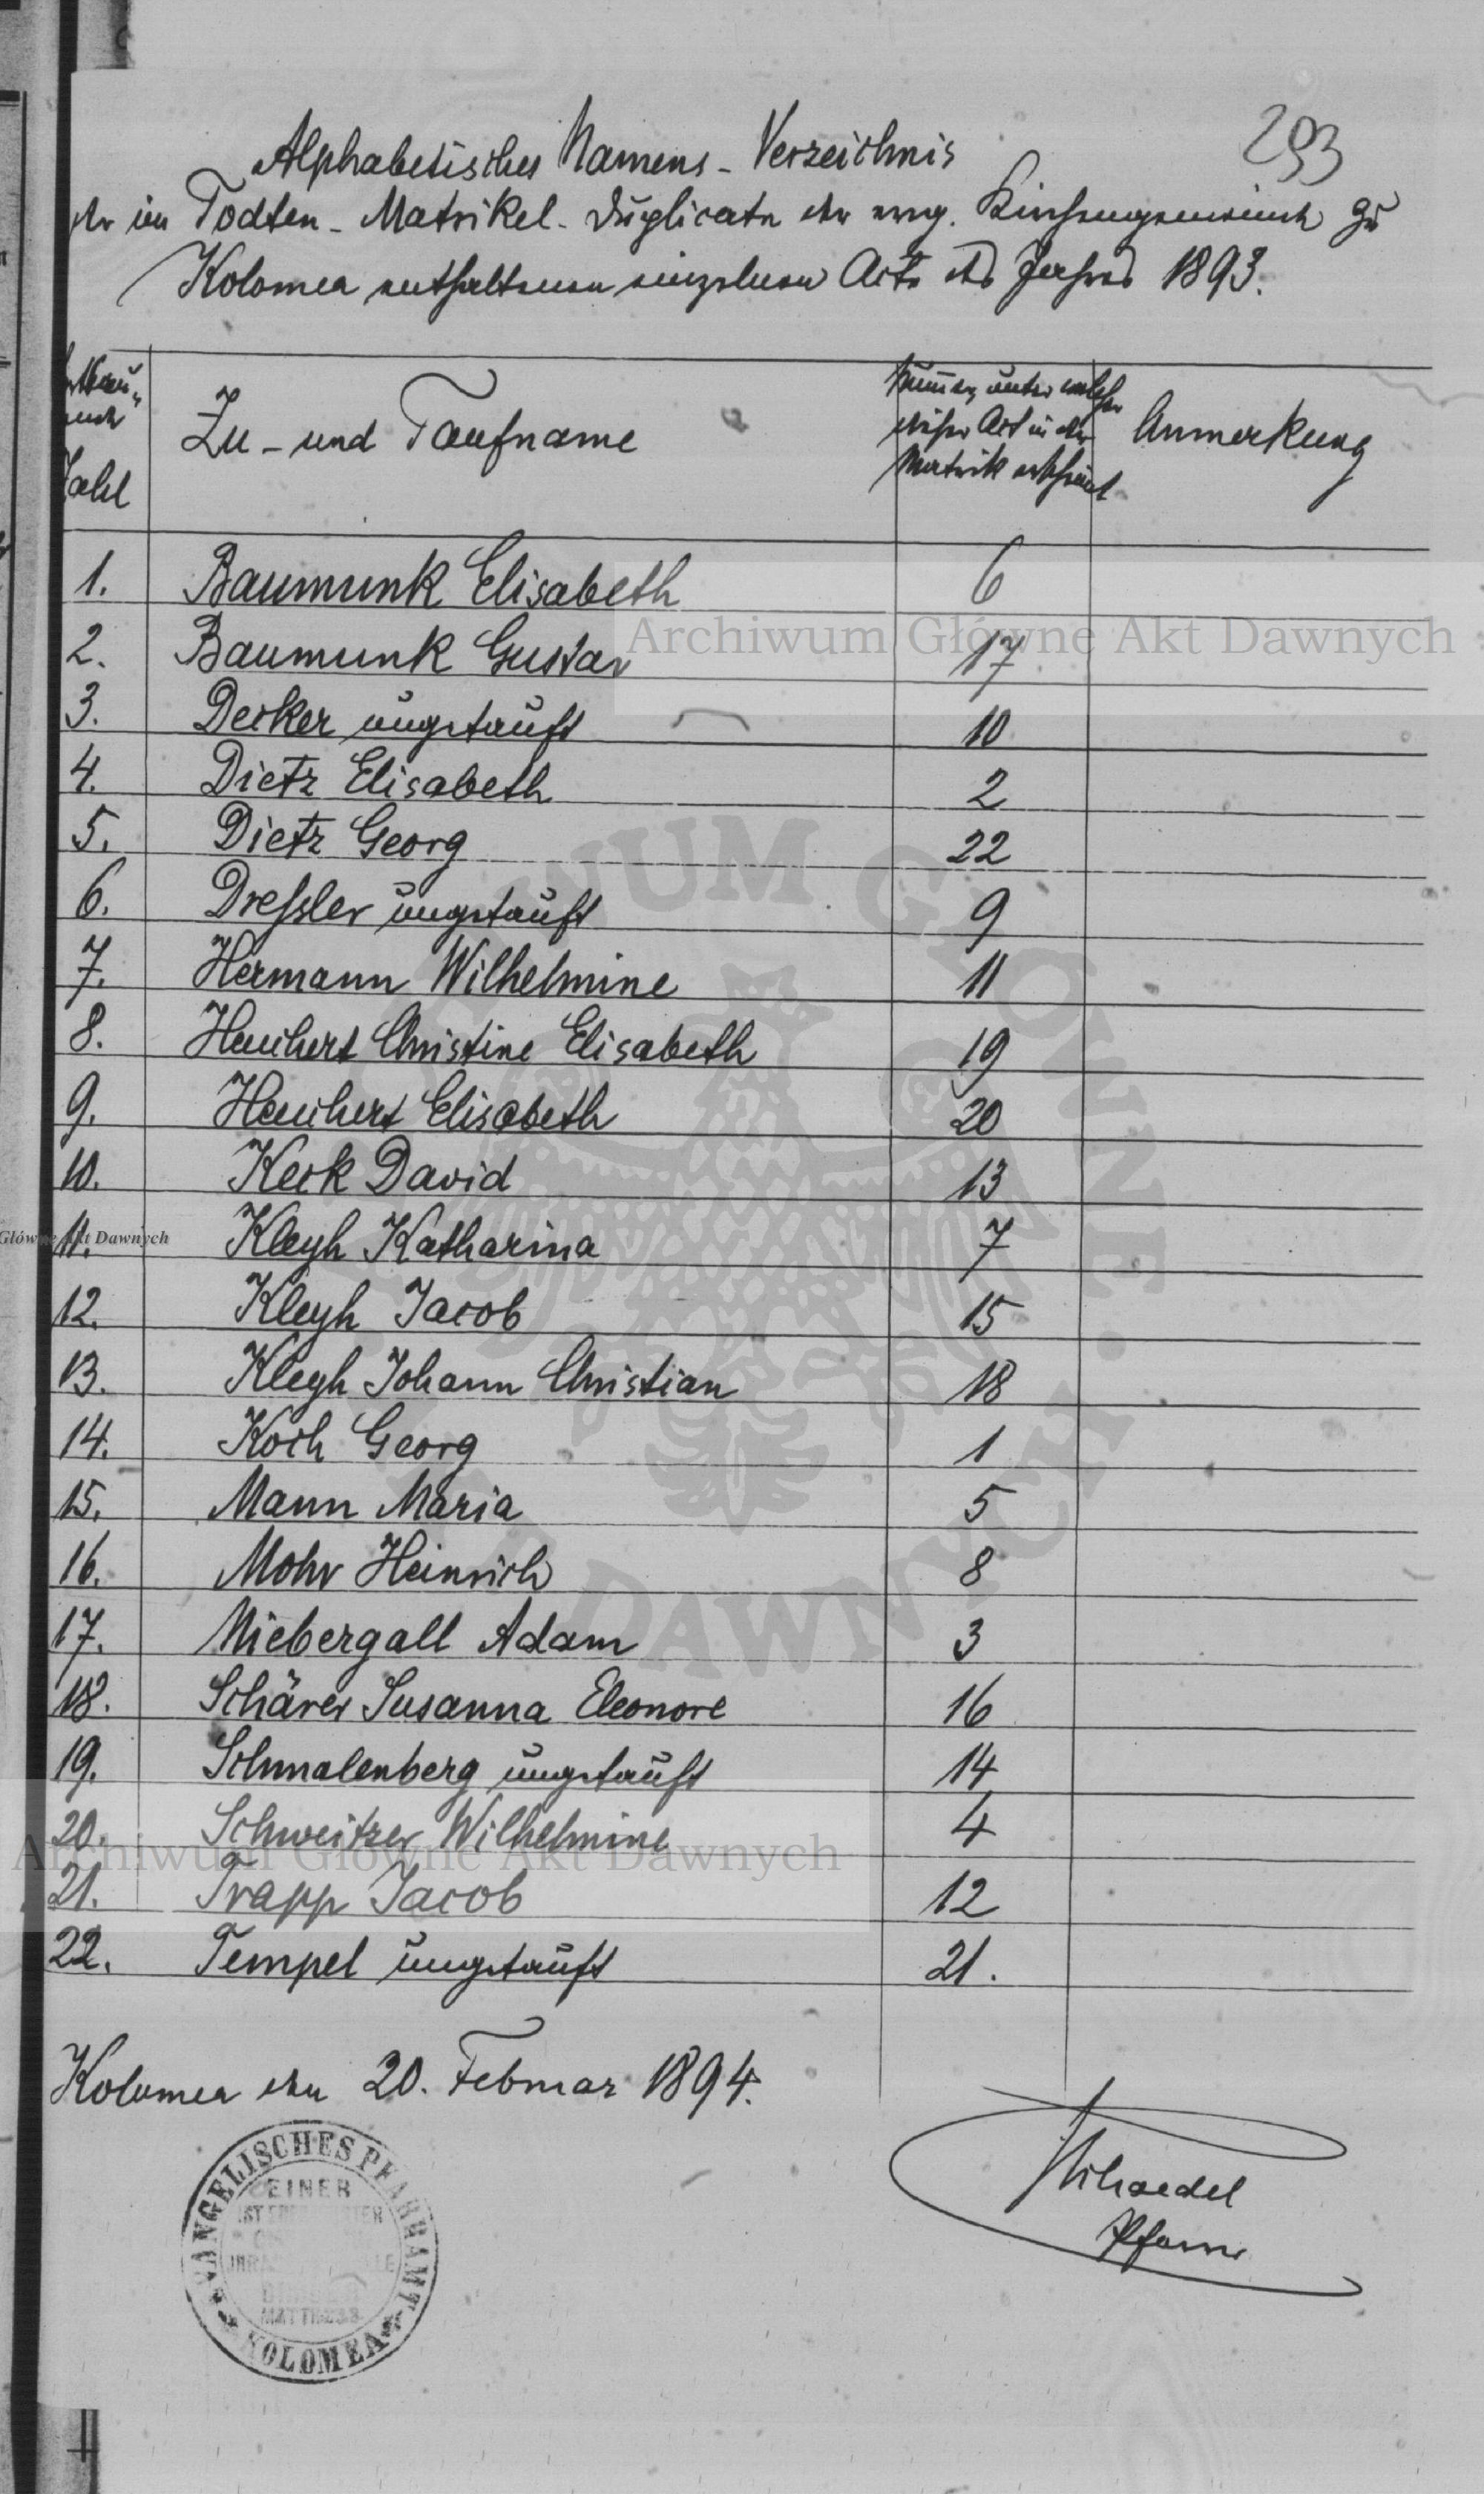 293
Alphabetisches Namens-Verzeichnis
der im Todten-Matrikel-Duplicate der evng. Kirchengemeinde zu
Kolomea enthaltenen einzelnen Acte des Jahres 1893.
Zahl
Zu- und Taufname
Nummer, unter welcher
dieser Act in der
Matrik erscheint
Anmerkung
1. Baumunk Elisabeth 6
2. Baumunk Gustav 17
3. Decker ungetauft 10
4. Dietz Elisabeth 2
5. Dietz Georg 22
6. Dreßler ungetauft 9
7. Hermann Wilhelmine 11
8. Heuchert Christine Elisabeth 19
9. Heuchert Elisabeth 20
10. Keck David 13
11. Kleyh Katharina 7
12. Kleyh Jacob 15
13. Kleyh Johann Christian 18
14. Koch Georg 1
15. Mann Maria 5
16. Mohr Heinrich 8
17. Niebergall Adam 3
18. Schärer Susanna Eleonore 16
19. Schmalenberg ungetauft 14
20. Schweitzer Wilhelmine 4
21. Trapp Jacob 12
22. Tempel ungetauft 21.
Kolomea den 20. Februar 1894.
Pfarrer
EVANGELISCHES PFARRAMT
EINER
MATTHESS
KOLOMEA
Archiwum Główne Akt Dawnych
Główne Akt Dawnych
Archiwum Główne Akt Dawnych